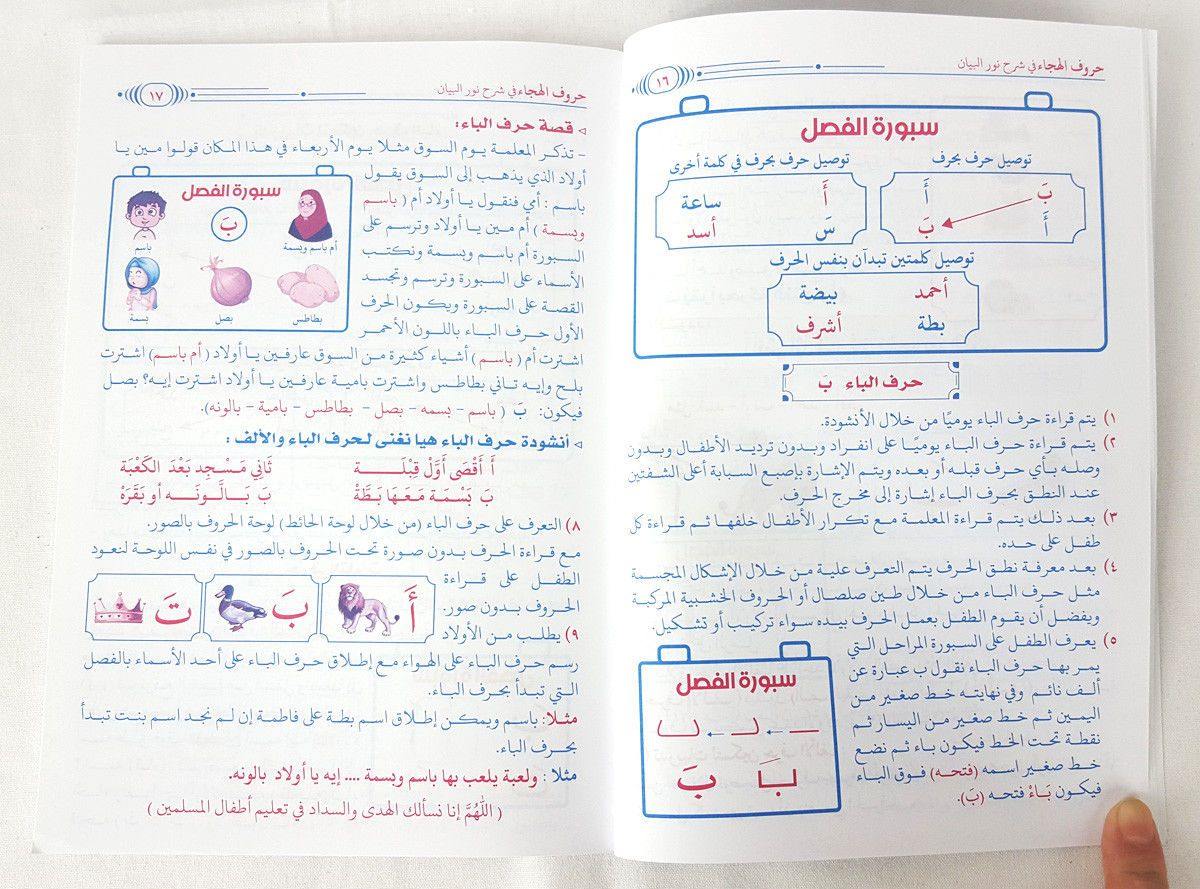 حروف الهجاء في شرح نور البيان
١٦
سبورة الفصل
توصيل حرف بحرف
بَ أَ
أَ بَ
توصيل حرف بحرف في كلمة أخرى
أَ ساعة
سَ أسد
توصيل كلمتين تبدآن بنفس الحرف
أحمد بيضة
بطة أشرف
حرف الباء بَ
١) يتم قراءة حرف الباء يوميًا من خلال الأنشودة.
٢) يتم قراءة حرف الباء يوميًا على انفراد وبدون ترديد الأطفال وبدون
وصله بأي حرف قبله أو بعده ويتم الإشارة بإصبع السبابة أعلى الشفتين
عند النطق بحرف الباء إشارة إلى مخرج الحرف.
٣) بعد ذلك يتم قراءة المعلمة مع تكرار الأطفال خلفها ثم قراءة كل
طفل على حده.
٤) بعد معرفة نطق الحرف يتم التعرف علية من خلال الإشكال المجسمة
مثل حرف الباء من خلال طين صلصال أو الحروف الخشبية المركبة
ويفضل أن يقوم الطفل بعمل الحرف بيده سواء تركيب أو تشكيل.
٥) يعرف الطفل على السبورة المراحل التي
يمر بها حرف الباء نقول ب عبارة عن
ألف نائم وفي نهايته خط صغير من
اليمين ثم خط صغير من اليسار ثم
نقطة تحت الخط فيكون باء ثم نضع
خط صغير اسمه (فتحه) فوق الباء
فيكون بَاءْ فتحه (بَ).
سبورة الفصل
بَ
حروف الهجاء في شرح نور البيان
١٧
◃ قصة حرف الباء:
- تذكر المعلمة يوم السوق مثلا يوم الأربعاء في هذا المكان قولوا مين يا
أولاد الذي يذهب إلى السوق يقول
باسم : أمي فنقول يا أولاد أم ( باسم
وبسمة ) أم مين يا أولاد وترسم على
السبورة أم باسم وبسمة ونكتب
الأسماء على السبورة وترسم وتجسد
القصة على السبورة ويكون الحرف
الأول حرف الباء باللون الأحمر
سبورة الفصل
بَ
باسم
أم باسم وبسمة
بسمة
بصل
بطاطس
اشترت أم ( باسم ) أشياء كثيرة من السوق عارفين يا أولاد ( أم باسم) اشترت
بلح وإيه تاني بطاطس واشترت بامية عارفين يا أولاد اشترت إيه؟ بصل
فيكون: بَ ( باسم - بسمه - بصل - بطاطس - بامية - بالونه).
◃ أنشودة حرف الباء هيا نغنى لحرف الباء والألف :
أَ أَقْصَى أَوَّل قِبْلَـــــة ثَانِي مَسْجِدٍ بَعْدَ الكَعْبَة
بَ بَسْمَة مَعَهَا بَطَّةْ بَ بَـالُّونَـــه أو بَقَرَهْ
٨) التعرف على حرف الباء (من خلال لوحة الحائط) لوحة الحروف بالصور.
مع قراءة الحرف بدون صورة تحت الحروف بالصور في نفس اللوحة لنعود
الطفل على قراءة
الحروف بدون صور.
أَ
بَ
تَ
٩) يطلب من الأولاد
رسم حرف الباء على الهواء مع إطلاق حرف الباء على أحد الأسماء بالفصل
التي تبدأ بحرف الباء.
مثلا: باسم ويمكن إطلاق اسم بطة على فاطمة إن لم نجد اسم بنت تبدأ
بحرف الباء.
مثلا : ولعبة يلعب بها باسم وبسمة .... إيه يا أولاد بالونه.
( اللهُمَّ إنا نسألك الهدى والسداد في تعليم أطفال المسلمين )